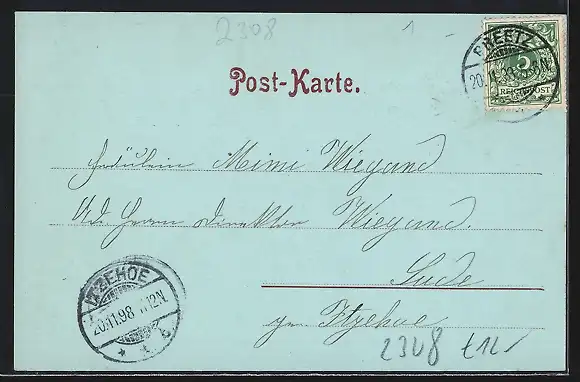 2308
1
PREETZ
20.11.98
5
REICHSPOST
Post-Karte.
Fräulein Mimi Wiegand
Adr. Herrn Direktor Wiegand.
Sude
Itzehoe
ITZEHOE
20.11.98 12N.
2308